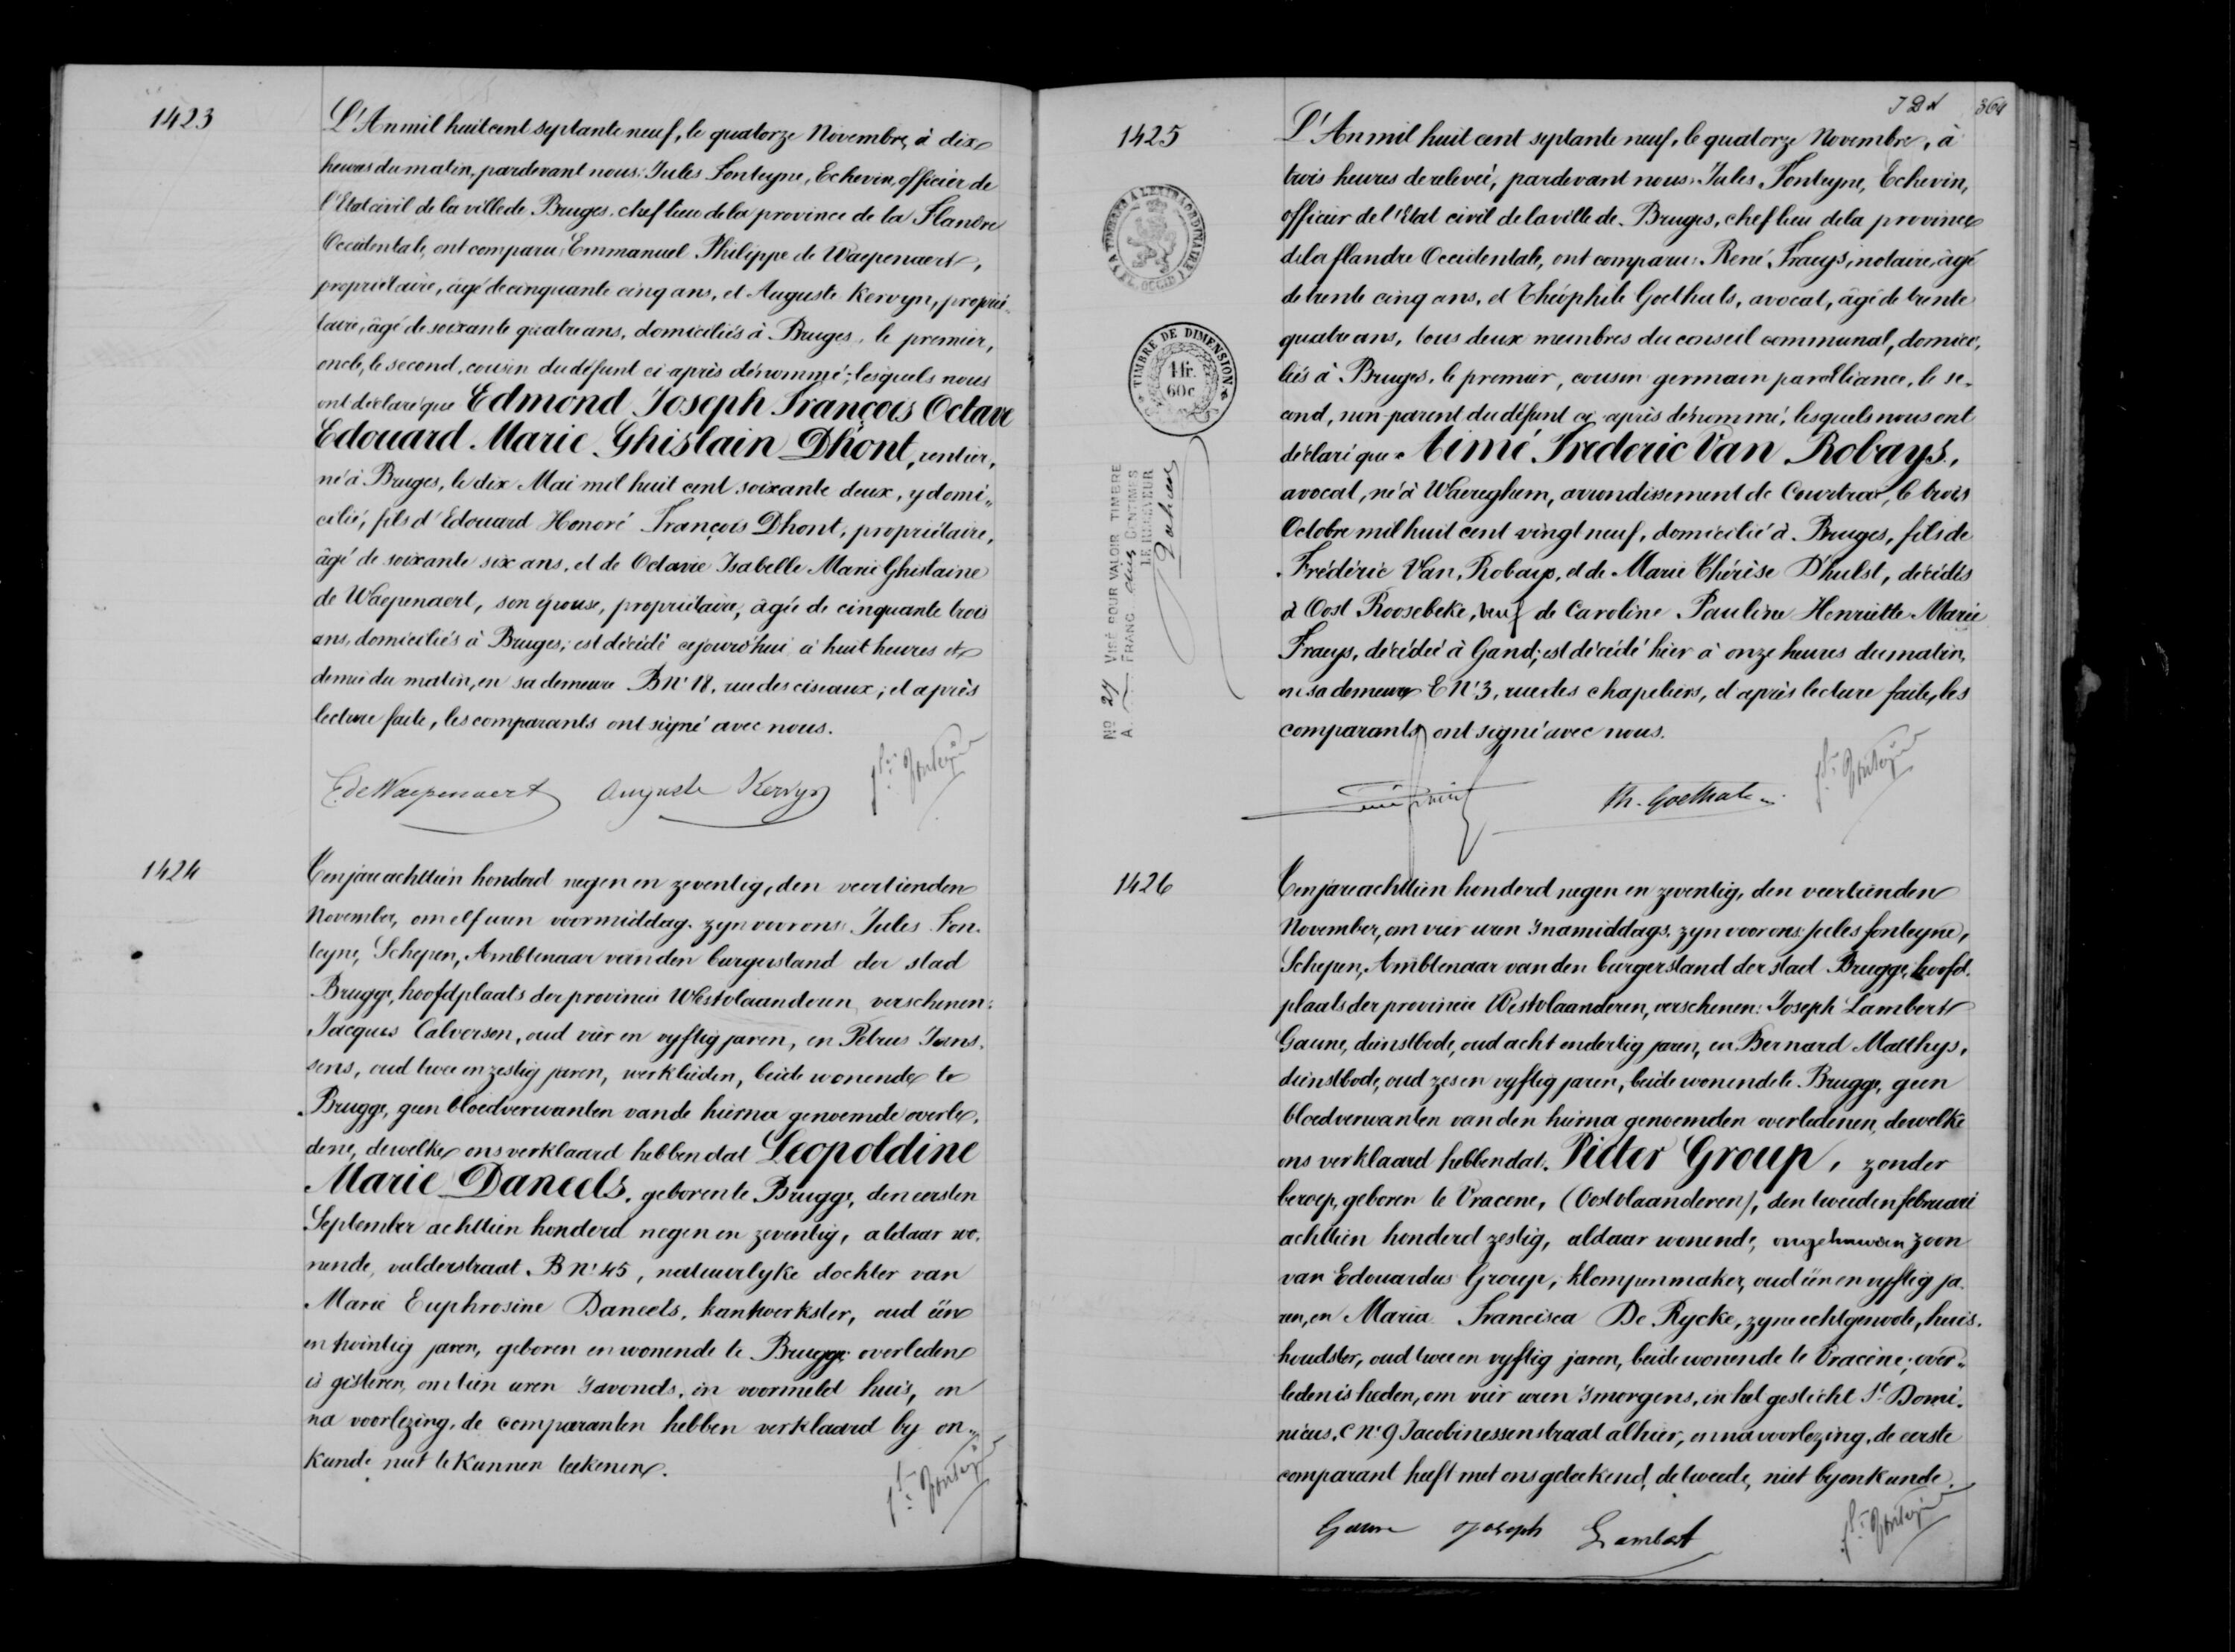 1423
L'An mil huit cent septante neuf, le quatorze Novembre, à dix
heures du matin, pardevant nous: Jules Fonteyne, Echevin, officier de
l'Etat civil de la ville de Bruges, chef lieu de la province de la Flandre
Occidentale, ont comparu: Emmanuel Philippe de Waepenaert,
propriétaire, âgé de cinquante cinq ans, et Auguste Kervyn, proprié-
taire, âgé de soixante quatre ans, domiciliés à Bruges, le premier,
oncle, le second, cousin du défunt ci après dénommé; lesquels nous
ont déclaré que Edmond Joseph François Octave
Edouard Marie Ghislain Dhont, rentier,
né à Bruges, le dix Mai mil huit cent soixante deux, y domi-
cilié, fils d'Edouard Honoré François Dhont, propriétaire,
âgé de soixante six ans, et de Octavie Isabelle Marie Ghislaine
de Waepenaert, son épouse, propriétaire, âgée de cinquante trois
ans, domiciliés à Bruges; est décédé cejourd'hui à huit heures et
demie du matin, en sa demeure B N° 18, rue des ciseaux; et après
lecture faite, les comparants ont signé avec nous.
E. de Waepenaert Auguste Kervyn Jles Fonteyne
1424
Ten jare achttien honderd negen en zeventig, den veertienden
November, om elf uren voormiddag, zyn voor ons: Jules Fon-
teyne, Schepen, Ambtenaar van den burgerstand der stad
Brugge, hoofdplaats der provincie Westvlaanderen, verschenen:
Jacques Calverson, oud vier en vyftig jaren, en Petrus Jans-
sens, oud twee en zestig jaren, werklieden, beide wonende te
Brugge, geen bloedverwanten van de hierna genoemde overle-
dene, dewelke ons verklaard hebben dat Leopoldine
Marie Daneels, geboren te Brugge, den eersten
September achttien honderd negen en zeventig, aldaar wo-
nende, vulderstraat B N° 45, natuurlyke dochter van
Marie Euphrosine Daneels, kantwerkster, oud één
en twintig jaren, geboren en wonende te Brugge overleden
is gisteren, om tien uren s'avonds, in voormeld huis, en
na voorlezing, de comparanten hebben verklaard by on-
kunde niet te kunnen teekenen.
Jles Fonteyne
364
1425
L'An mil huit cent septante neuf, le quatorze Novembre, à
trois heures de relevée, pardevant nous: Jules Fonteyne, Echevin,
officier de l'Etat civil de la ville de Bruges, chef lieu de la province
de la flandre Occidentale, ont comparu: René Fraeys, notaire, âgé
de trente cinq ans, et Théophile Goethals, avocat, âgé de trente
quatre ans, tous deux membres du conseil communal, domici-
liés à Bruges, le premier, cousin germain par alliance, le se-
cond, non parent du défunt ci-après dénommé, lesquels nous ont
déclaré que Aimé Frederic Van Robays,
avocat, né à Waereghem, arrondissement de Courtrai, le trois
Octobre mil huit cent vingt neuf, domicilié à Bruges, fils de
Frédéric Van Robays, et de Marie Thérèse D'hulst, décédés
à Oost Roosebeke, veuf de Caroline Pauline Henriette Marie
Fraeys, décédée à Gand; est décédé hier à onze heures du matin,
en sa demeure E N° 3, rue des chapeliers, et après lecture faite, les
comparants ont signé avec nous.
Th. Goethals Jles Fonteyne
TIMBRE DE DIMENSION
1 fr.
60 c.
No 24 VISÉ POUR VALOIR TIMBRE
A FRANC CENTIMES
LE RECEVEUR
1426
Ten jare achttien honderd negen en zeventig, den veertienden
November, om vier uren s'namiddags, zyn voor ons: Jules fonteyne,
Schepen, Ambtenaar van den burgerstand der stad Brugge, hoofd-
plaats der provincie Westvlaanderen, verschenen: Joseph Lambert
Gaune, dienstbode, oud acht en dertig jaren, en Bernard Matthys,
dienstbode, oud zes en vyftig jaren, beide wonende te Brugge, geen
bloedverwanten van den hierna genoemden overledenen, dewelke
ons verklaard hebben dat Pieter Group, zonder
beroep, geboren te Vracene, (Oostvlaanderen), den tweeden februari
achttien honderd zestig, aldaar wonende, ongehuwden zoon
van Edouardus Group, klompenmaker, oud één en vyftig ja-
ren, en Maria Francisca De Rycke, zyne echtgenoote, huis-
houdster, oud twee en vyftig jaren, beide wonende te Vracène; over-
leden is heden, om vier uren s'morgens, in het gesticht St Domi-
nicus, C N° 9 Jacobinessenstraat alhier, en na voorlezing, de eerste
comparant heeft met ons geteekend, de tweede, niet by onkunde.
Gaune Joseph Lambert Jles Fonteyne